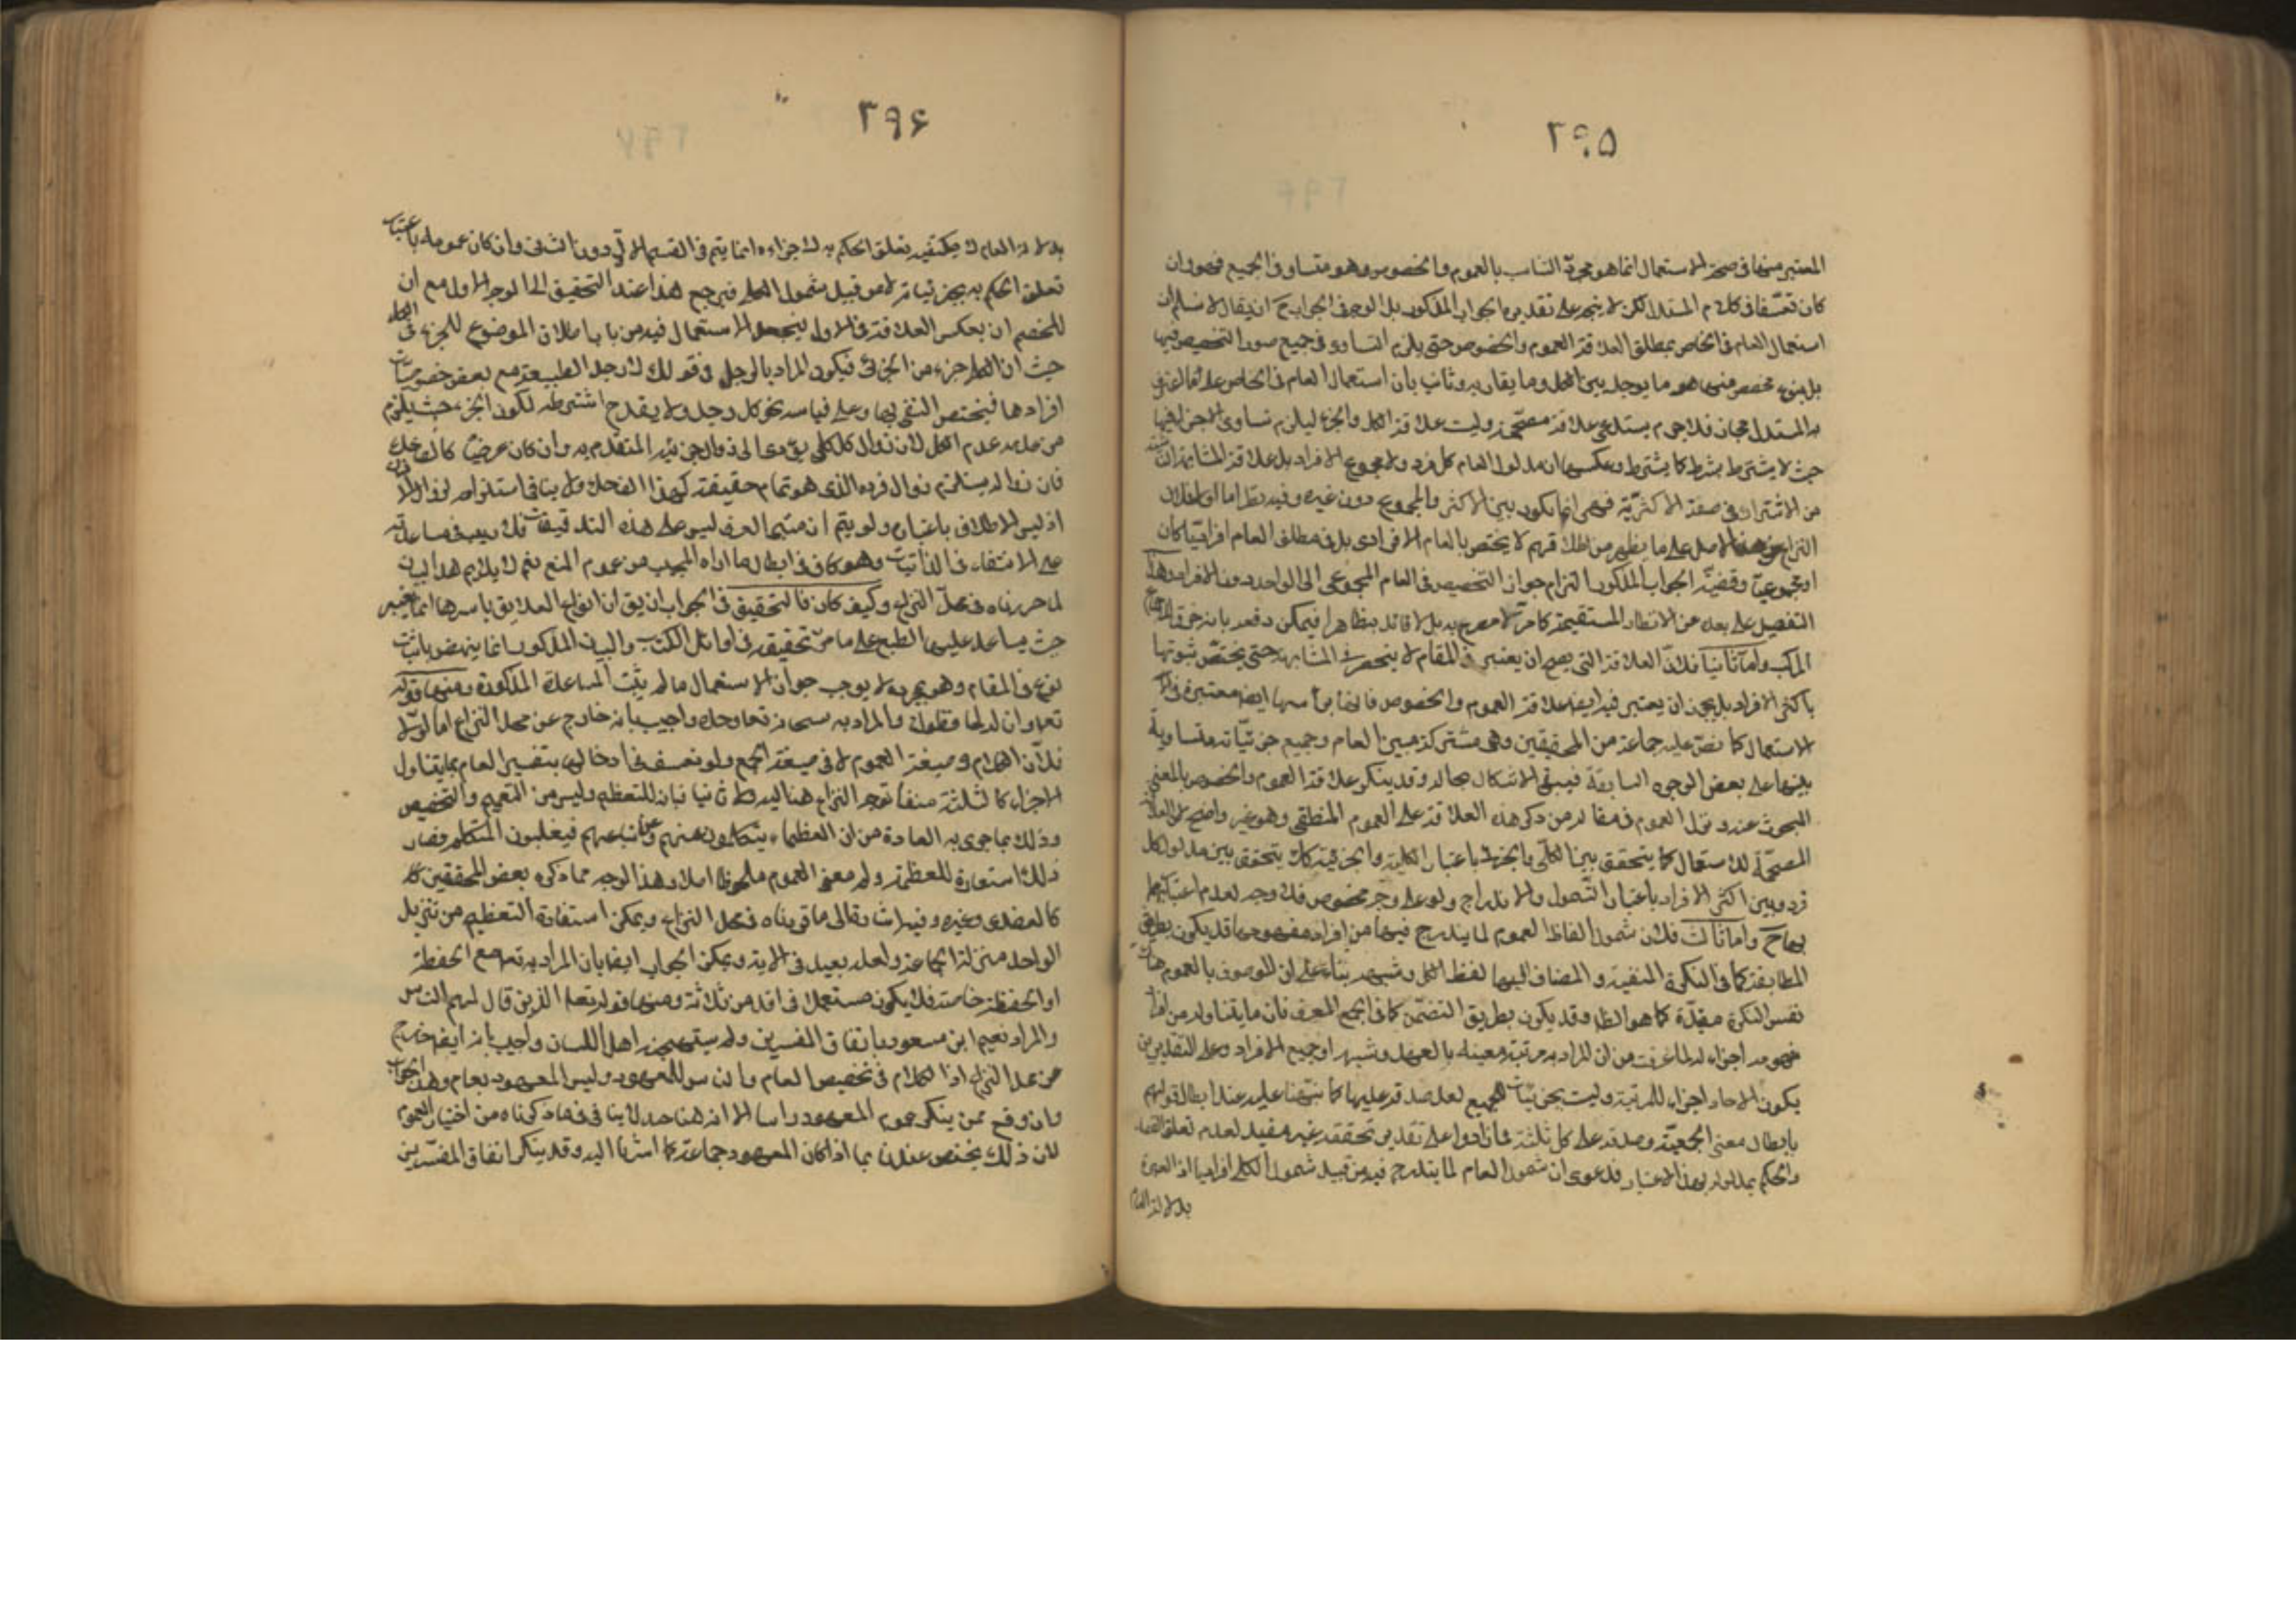 ۲۹۵
المعتبر منها فى صحة الاستعمال انما هو مجرد التناسب بالعموم والخصوص وهو متساو فى الجميع فهو وان
كان تعسفا فى كلام المستدل لكن لا يتجه على تقديره الجواب المذكور بل الوجه فى الجواب ح ان يقال لا نسلم ان
استعمال العام فى الخاص بمطلق العلاقة العموم والخصوص حتى يلزم التساوى فى جميع صور التخصيص فيها
بل بنوع مخصوص منها هو ما يوجد بين الجمل وما يقاربه وثانيا بان استعمال العام فى الخاص على ما اعترف
به المستدل مجاز فلا جرم يستدعى علاقة مصححة وليست علاقة الكل والجزء ليلزم تساوى الاجزاء فيها
حيث لا يشترط بشرط كما يشترط فى عكسها ان مدلول العام كل فرد ولا مجموع الافراد بل علاقة المشابهة
من الاشتراك فى صفة الاكثرية فهى انما يكون بين الاكثر والمجموع دون غيره وفيه نظر اما اولا فلان
النزاع فى هذا الاصل على ما يظهر من اطلاقهم لا يختص بالعام الافرادى بل فى مطلق العام افراديا كان
او مجموعيا وقضية الجواب المذكور التزام جواز التخصيص فى العام المجموعى الى الواحد دون الافرادى وهذا
التفصيل على بعده عن الانظار المستقيمة كما ترى لا مصرح به بل لا قائل به ظاهرا فيمكن دفعه بانه خرق الاجماع
المركب واما ثانيا فلان العلاقة التى يصح ان يعتبر فى المقام لا ينحصر فى المشابهة حتى يختص ثبوتها
باكثر الافراد بل يجوز ان يعتبر فيه ايضا علاقة العموم والخصوص فانها بنفسها ايضا معتبرة فى
الاستعمال كما نص عليه جماعة من المحققين وهى مشتركة بين العام وجميع جزئياته متساوية
بينها على بعض الوجوه السابقة فيبقى الاشكال بحاله وقد ينكر علاقة العموم والخصوص بالمعنى
المبحوث عنه ونزل العموم فى مقالة من ذكر هذه العلاقة على العموم المنطقى وهو غير واضح لان العلاقة
المصححة للاستعمال كما يتحقق بين الكلى والجزئى باعتبار الكلية والجزئية كذلك يتحقق بين مدلول كل
فرد وبين اكثر الافراد باعتبار الشمول والاندراج ولو على وجه مخصوص فلا وجه لعدم اعتبارهما
بها ح واما ثالثا فلان شمول الفاظ العموم لما يندرج فيها من افراد مفهومها قد يكون بطريق
المطابقة كما فى النكرة المنفية والمضاف اليها لفظ الكل وشبهه بناء على ان الموصوف بالعموم هناك
نفس النكرة مقيدة كما هو الظاهر وقد يكون بطريق التضمن كما فى الجمع المعرف فان ما يتناوله من افراد
مفهومه اجزاء له لما عرفت من ان المراد به مرتبة معينة بالعهد وشبهه او جميع الافراد وعلى التقديرين
يكون الاحاد اجزاء للمرتبة وليست بجزئيات للجميع لعدم صدقه عليها كما نبهنا عليه عند ابطال قولهم
بابطال معنى الجمعية وصدقه على كل ثلثة فما زادوا على تقدير تحققه غير مفيد لعدم تعلق القصد
والحكم بمدلوله بهذا الاعتبار فدعوى ان شمول العام لما يندرج فيه من قبيل شمول الكلى افراده اذ العبرة
بدلالة العام
۲۹۶
بدلالة العام لا بكيفية تعلق الحكم به لاجزاءه انما يتم فى القسم الاول دون الثانى وان كان عمومه باعتبار
تعلق الحكم به بجزئياته لا من قبيل شمول الكل فيرجع هذا عند التحقيق الى الوجه الاول مع ان
للخصم ان يعكس العلاقة فى الاول بجعل الاستعمال فيه من باب اطلاق الموضوع للجزء فى الكل
حيث ان الكلى جزء من الجزئى فيكون المراد بالرجل فى قولك لا رجل الطبيعة مع بعض خصوصيات
افرادها فيختص النفى بها وعلى قياسه نحو كل رجل ولا يقدح اشتراطه لكون الجزء حيث يلزم
من عدمه عدم الكل لان زوال الكلى يؤدى الى زوال جزئيه المتقدم به وان كان عرضيا كالضاحك
فان زواله يستلزم زوال فرده الذى هو تمام حقيقته كهذا الضاحك ولا ينافى استلزامه لزوال
اذ ليس الاطلاق باعتباره ولو يتم ان متبنى العرف ليس على هذه التدقيقات فلا ريب فى مساعدته
على الانتفاء فى الذاتيات وهو كاف فى ابطال ما اراده المجيب من عموم المنع نعم لا يلايم هذا البيان
لما حررناه فى محل النزاع وكيف كان فالتحقيق فى الجواب ان يق ان انواع العلايق باسرها انما يعتبر
حيث يساعد عليها الطبع على ما مر تحقيقه فى اوائل الكتاب والبيان المذكور انما ينهض باثبات
نوع فى المقام وهو بمجرده لا يوجب جواز الاستعمال ما لم يثبت المساعدة المذكورة ومنها قوله
تعالى وانا له لحافظون والمراد به سبحانه تعالى وحده واجيب بانه خارج عن محل النزاع اما اولا
فلان الكلام فى صيغة العموم لا فى صيغة الجمع ولو تعسف فى ادخالها بتفسير العام بما يتناول
الاجزاء كالثلثة منفا توجه النزاع هنا اليه واما ثانيا فبان للتعظيم وليس من التعميم والتخصيص
وذلك بما جرى به العادة من ان العظماء يتكلمون عنهم وعن اتباعهم فيغلبون المتكلم فصار
ذلك استعارة للعظمة ولم معنى العموم ملحوظا اصلا وهذا الوجه مما ذكره بعض المحققين
كالعضدى وغيره وفيه اشارة الى ما قويناه فى محل النزاع ويمكن استفادة التعظيم من تنزيل
الواحد منزلة الجماعة ولعله بعيد فى الاية ويمكن الجواب ايضا بان المراد به تعالى مع الحفظة
او الحفظة خاصة فلا يكون مستعملا فى اقل من ثلاثة ومنها قوله تعالى الذين قال لهم الناس
والمراد نعيم ابن مسعود باتفاق المفسرين ولم يستهجنه اهل اللسان واجيب بانه ايضا خارج
عن محل النزاع اذ الكلام فى تخصيص العام والناس للمعهود وليس المعهود بعام وهذا الجواب
وان وقع ممن ينكر عموم المعهود راسا الا انه هنا حد لا ينافى ما ذكرناه من اختيار العموم
لان ذلك يختص عندنا بما اذا كان المعهود جماعة كما اشرنا اليه وقد ينكر اتفاق المفسرين